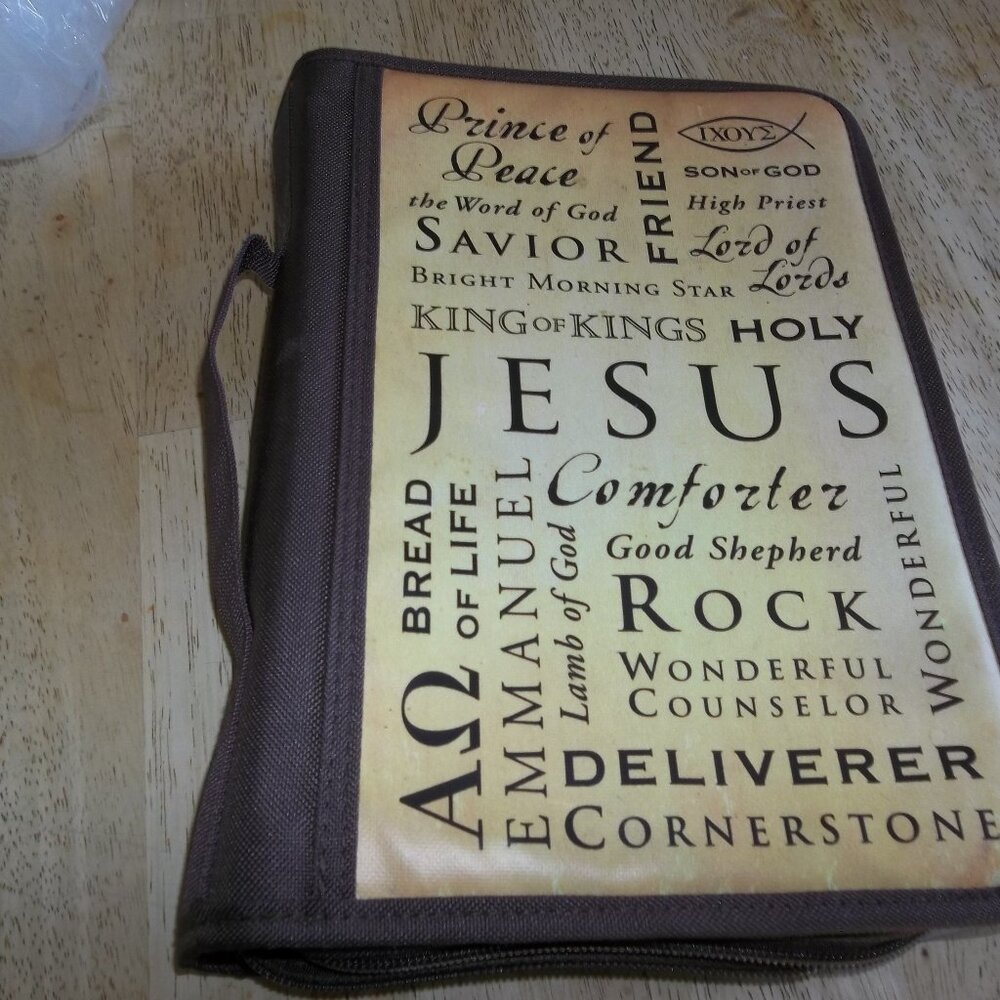 Prince of
Peace
FRIEND
ΙΧΟΥΣ
SON OF GOD
the Word of God
High Priest
SAVIOR
Lord of
Lords
BRIGHT MORNING STAR
KING OF KINGS
HOLY
JESUS
BREAD
OF LIFE
EMMANUEL
Comforter
Lamb of God
Good Shepherd
WONDERFUL
ROCK
WONDERFUL
COUNSELOR
ΑΩ
DELIVERER
CORNERSTONE